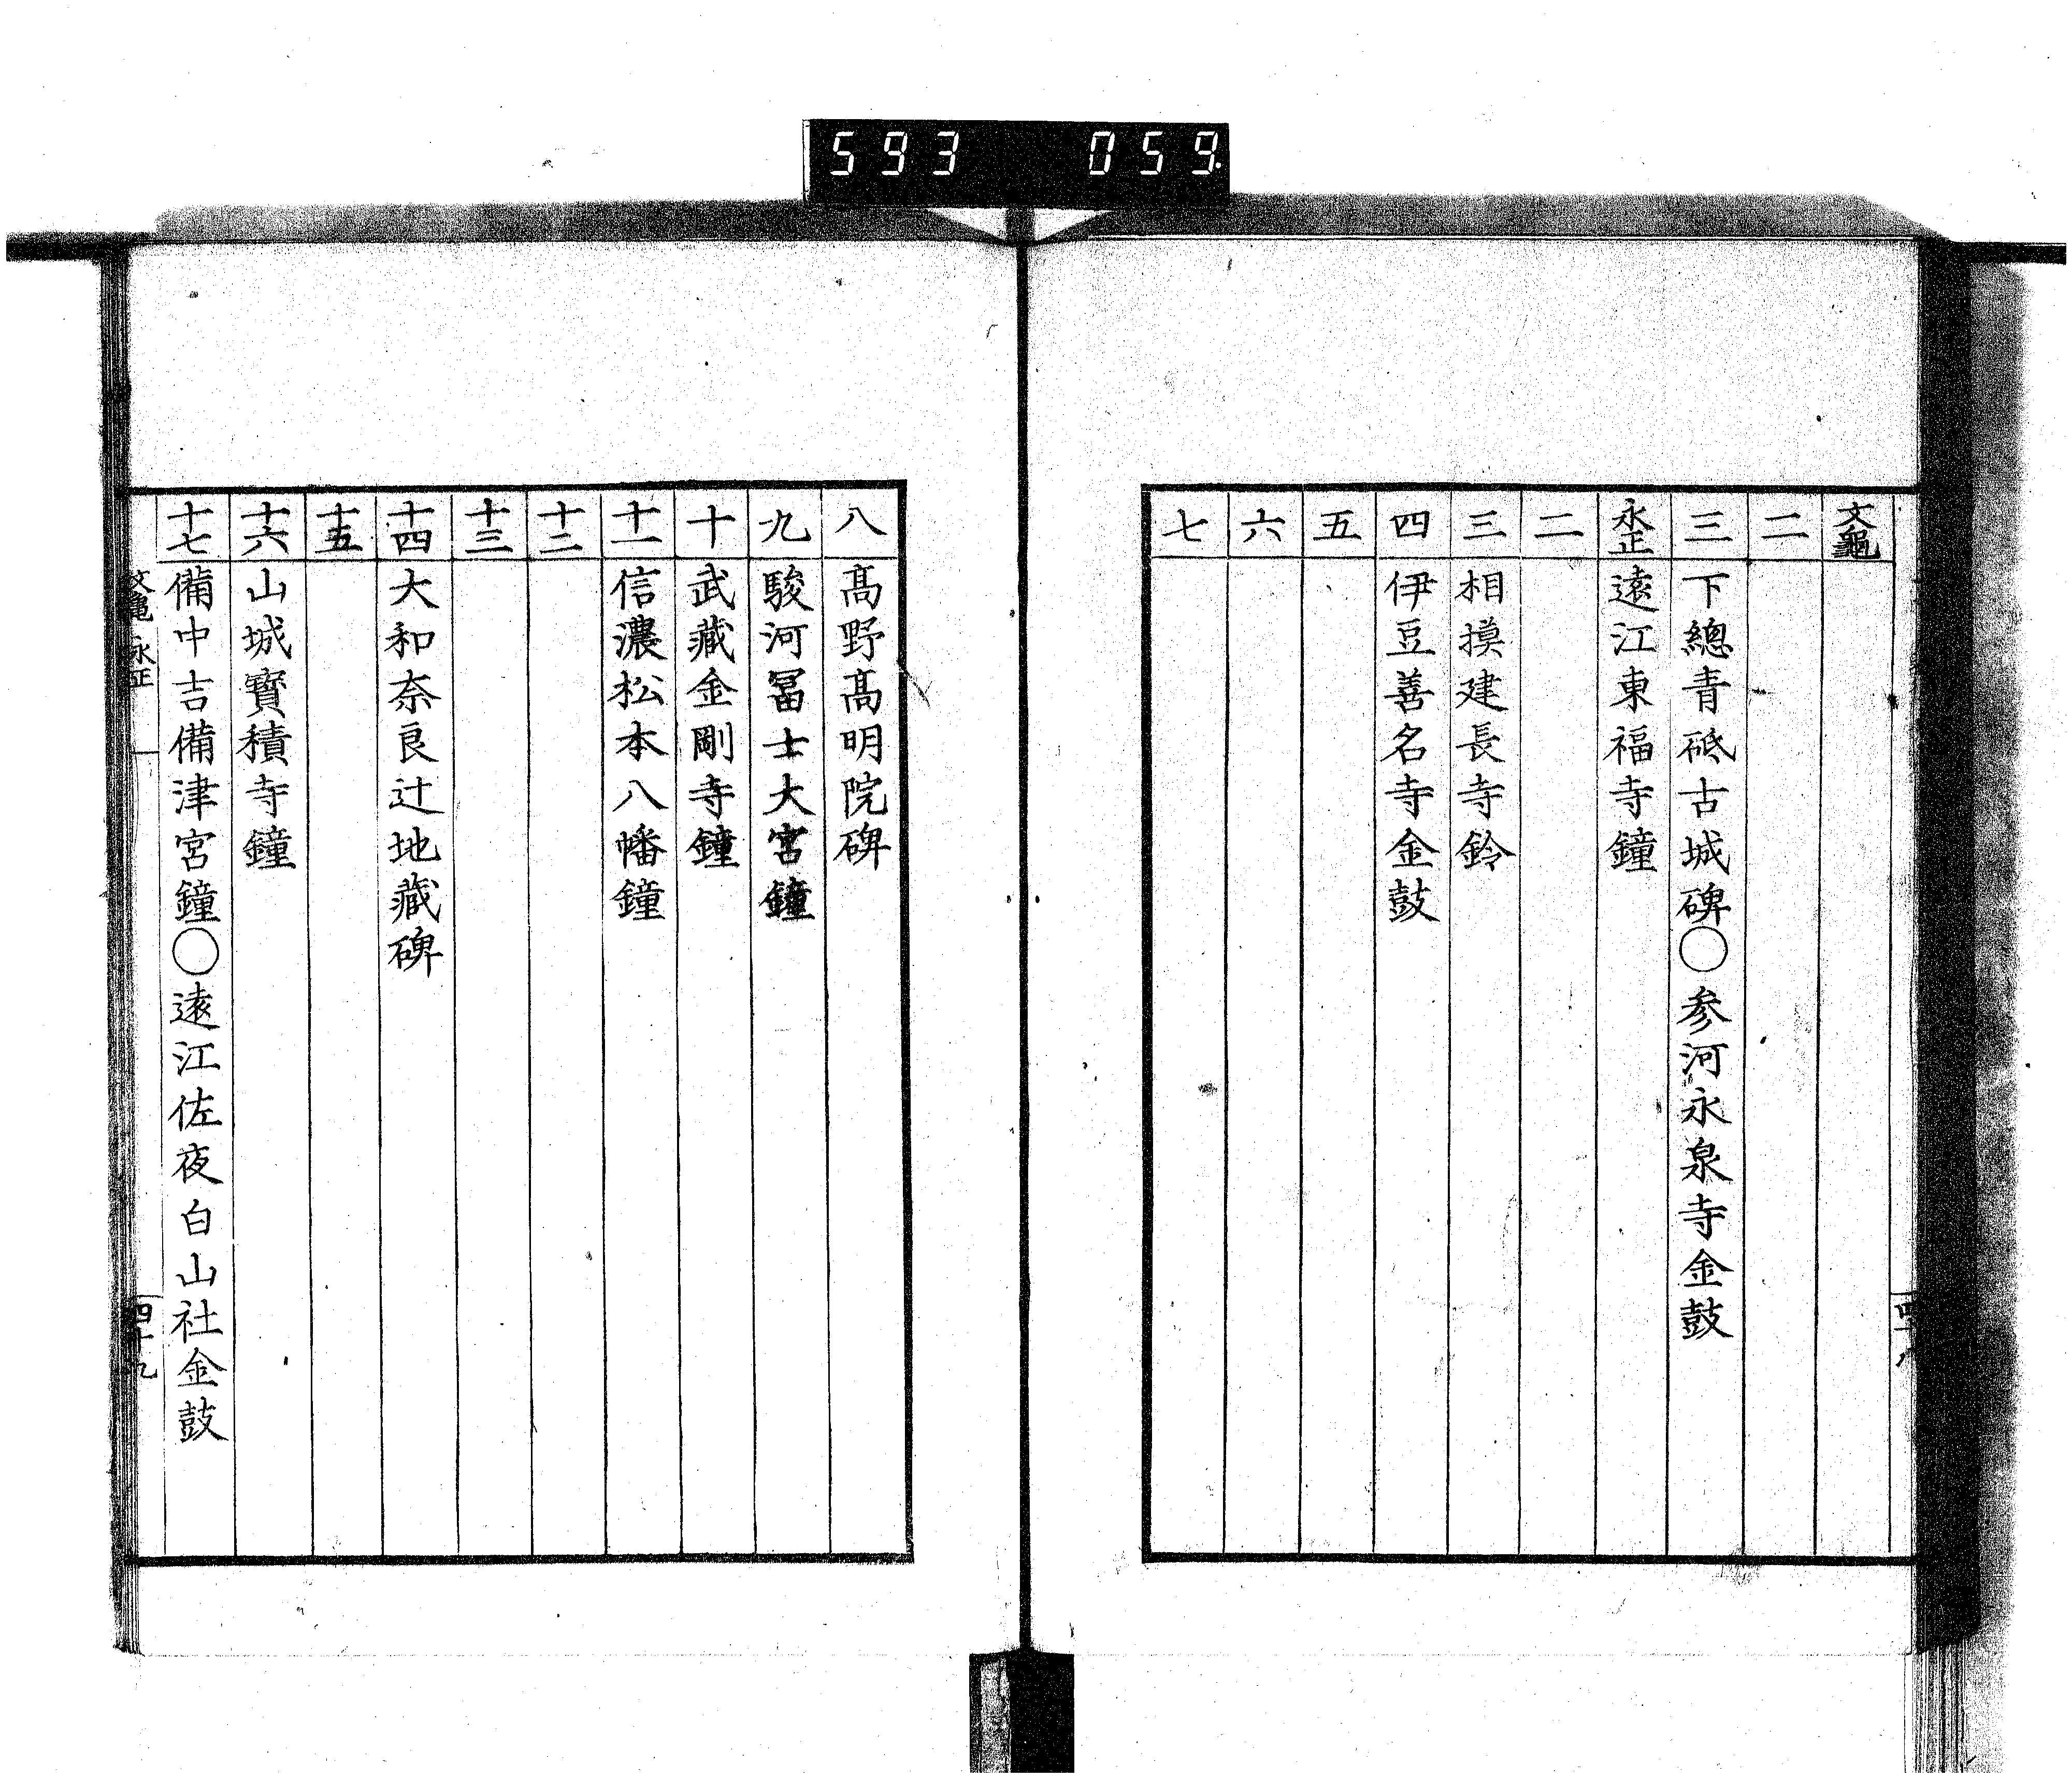 593 059
文龜
二
三 下總青砥古城碑○参河永泉寺金鼓
永正 遠江東福寺鐘
二
三 相摸建長寺鈴
四 伊豆善名寺金鼓
五
六
七
八 髙野髙明院碑
九 駿河冨士大宮鐘
十 武藏金剛寺鐘
十一 信濃松本八幡鐘
十二
十三
十四 大和奈良辻地藏碑
十五
十六 山城寶積寺鐘
十七 備中吉備津宮鐘○遠江佐夜白山社金鼓
文龜 永正 四十九